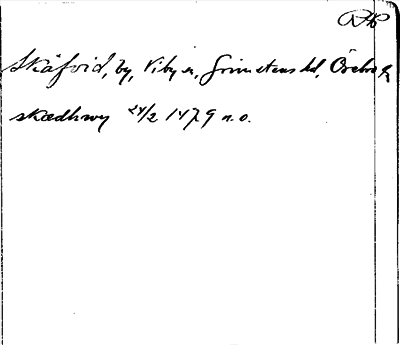 RAP
Skäfvid, by, Viby sn, Grimstens hd, Örebro l.
skædhwy 24/2 1479 n.o.